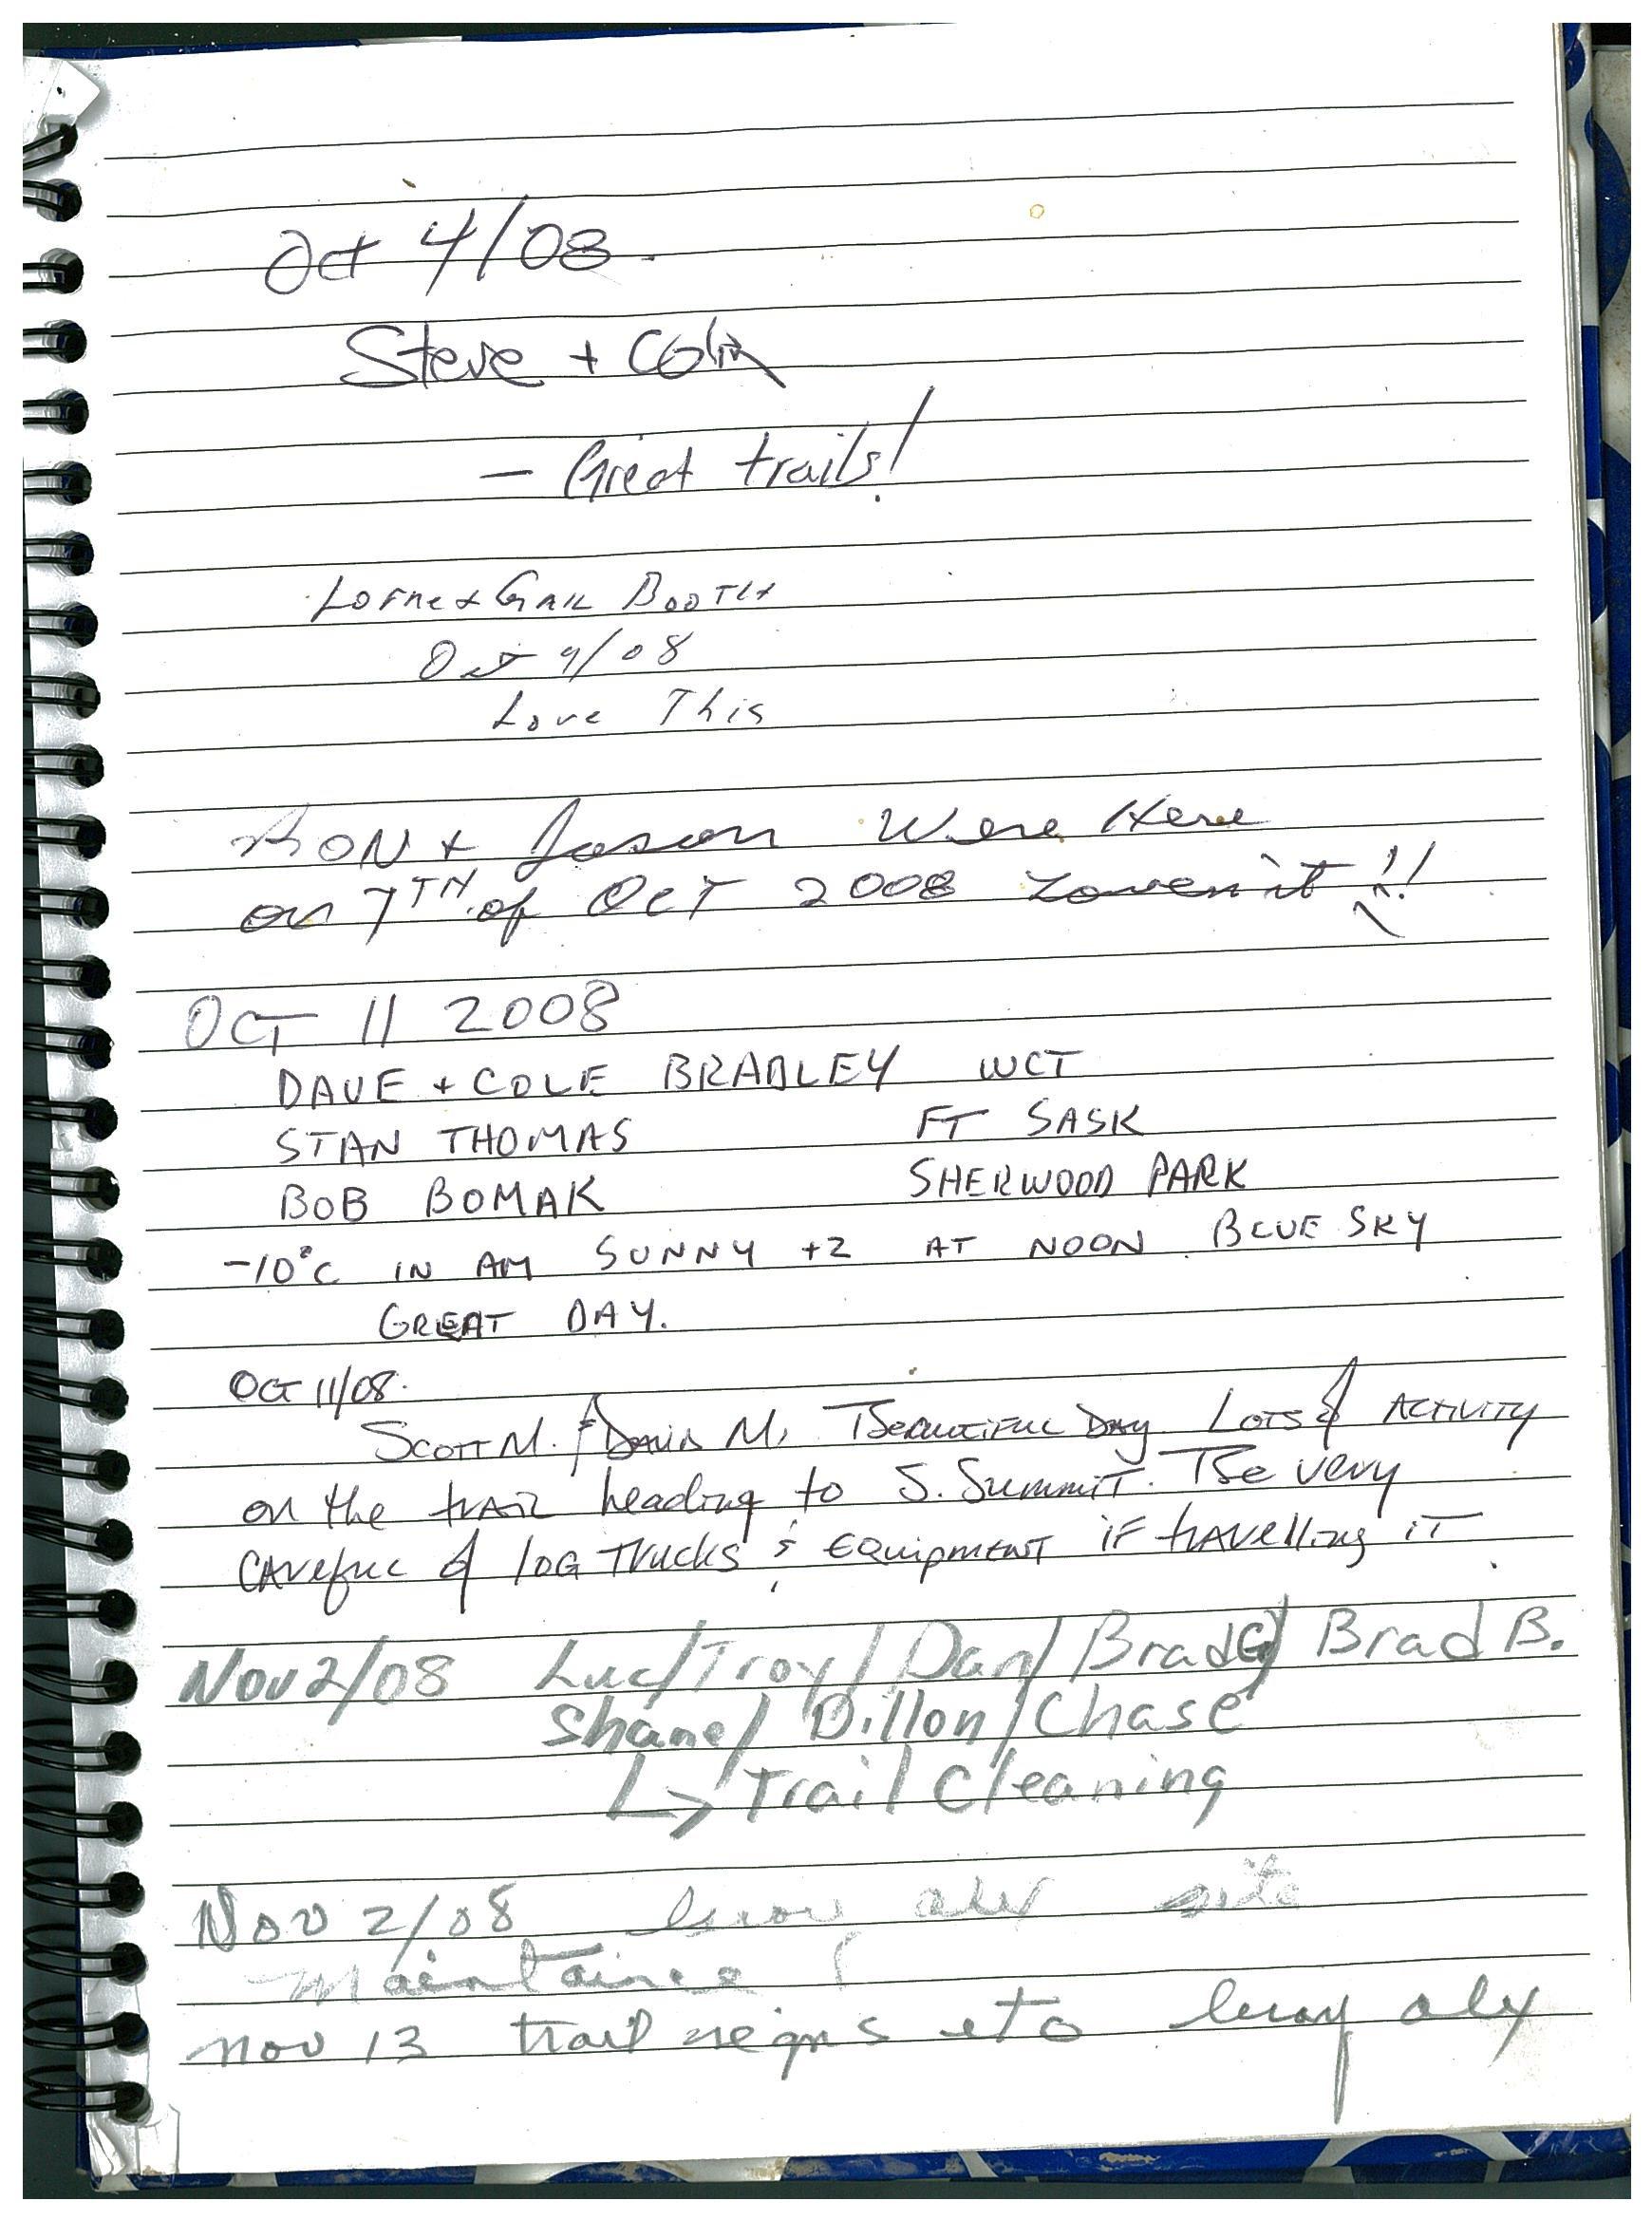 Oct 4/08.
Steve + Colin
- Great trails!
Lorne + GAIL BOOTH
Oct 9/08
Love This
RON + Jason Were Here
on 7TH of OCT 2008 Loven it !!
OCT 11 2008
DAVE + COLE BRADLEY WCT
STAN THOMAS FT SASK
BOB BOMAK SHERWOOD PARK
-10°C IN AM SUNNY +2 AT NOON. BLUE SKY
GREAT DAY.
OCT 11/08.
SCOTT M. & DAVID M. BEAUTIFUL DAY. LOTS of ACTIVITY
on the trAIL heading to S. SUMMIT. Be very
CAREFUL of lOG TrUCKS & EQUIPMENT iF trAVElling iT.
Nov 2/08 Luc/Troy/Dan/Brad G/ Brad B.
Shane/ Dillon/Chase
↳ Trail Cleaning
Nov 2/08 site
Maintaince
nov 13 trail signs